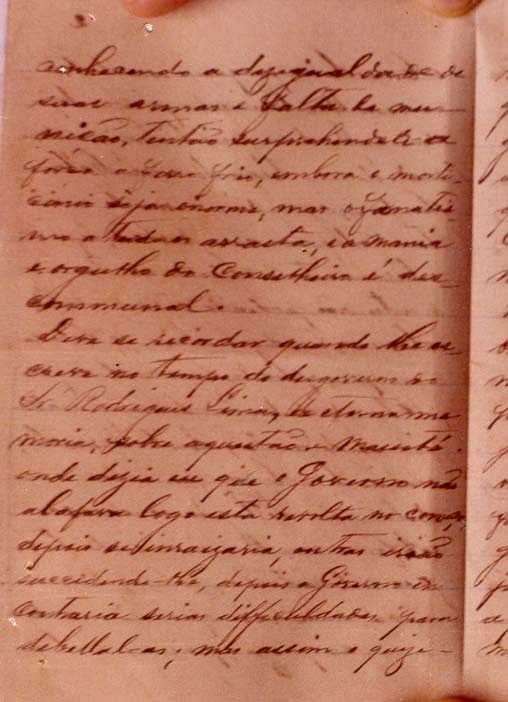 conhecendo a desigualdade de
suas armas e falta de mu-
nicão, tentão surprehendel-a
força a ferro frio, embora o morti-
cinio seja enorme, mas o fanatis-
mo a tudo os arrasta, e a mania
e orgulho do Conselheiro é des-
communal.
Deve se recordar quando lhe es-
crevi no tempo do desgoverno do
Sr Rodrigues Lima, de eterna me-
moria, sobre a questão de Massété.
onde dizia eu que o Governo não
abafava logo esta revolta no começo
depois se inraizaria, outras irião
succedendo-lhe, depois o Governo en-
contraria serias difficuldades para
debellal-as; mas assim o quize-